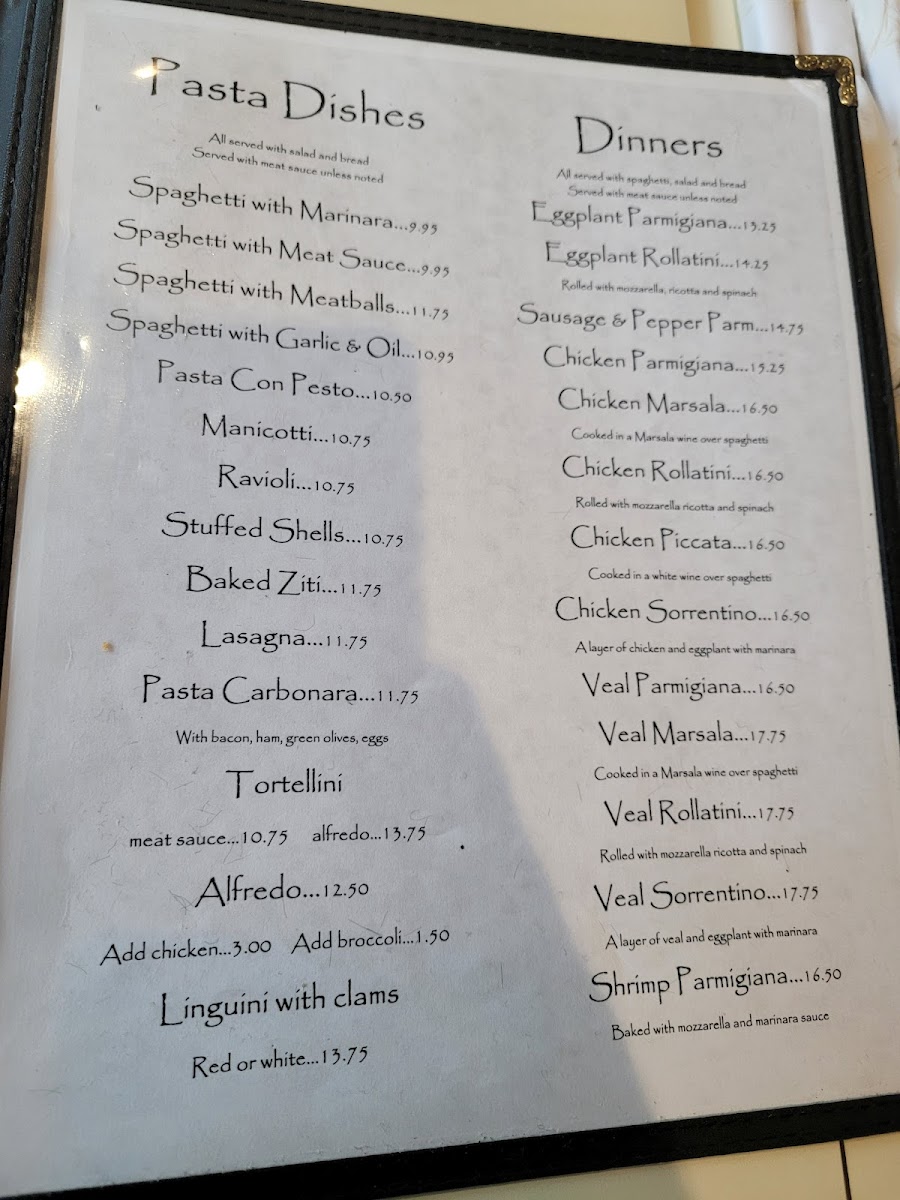 Pasta Dishes
All served with salad and bread
Served with meat sauce unless noted
Spaghetti with Marinara...9.95
Spaghetti with Meat Sauce...9.95
Spaghetti with Meatballs...11.75
Spaghetti with Garlic & Oil...10.95
Pasta Con Pesto...10.50
Manicotti...10.75
Ravioli...10.75
Stuffed Shells...10.75
Baked Ziti...11.75
Lasagna...11.75
Pasta Carbonara...11.75
With bacon, ham, green olives, eggs
Tortellini
meat sauce...10.75 alfredo...13.75
Alfredo...12.50
Add chicken...3.00 Add broccoli...1.50
Linguini with clams
Red or white...13.75
Dinners
All served with spaghetti, salad and bread
Served with meat sauce unless noted
Eggplant Parmigiana...13.25
Eggplant Rollatini...14.25
Rolled with mozzarella, ricotta and spinach
Sausage & Pepper Parm...14.75
Chicken Parmigiana...15.25
Chicken Marsala...16.50
Cooked in a Marsala wine over spaghetti
Chicken Rollatini...16.50
Rolled with mozzarella ricotta and spinach
Chicken Piccata...16.50
Cooked in a white wine over spaghetti
Chicken Sorrentino...16.50
A layer of chicken and eggplant with marinara
Veal Parmigiana...16.50
Veal Marsala...17.75
Cooked in a Marsala wine over spaghetti
Veal Rollatini...17.75
Rolled with mozzarella ricotta and spinach
Veal Sorrentino...17.75
A layer of veal and eggplant with marinara
Shrimp Parmigiana...16.50
Baked with mozzarella and marinara sauce